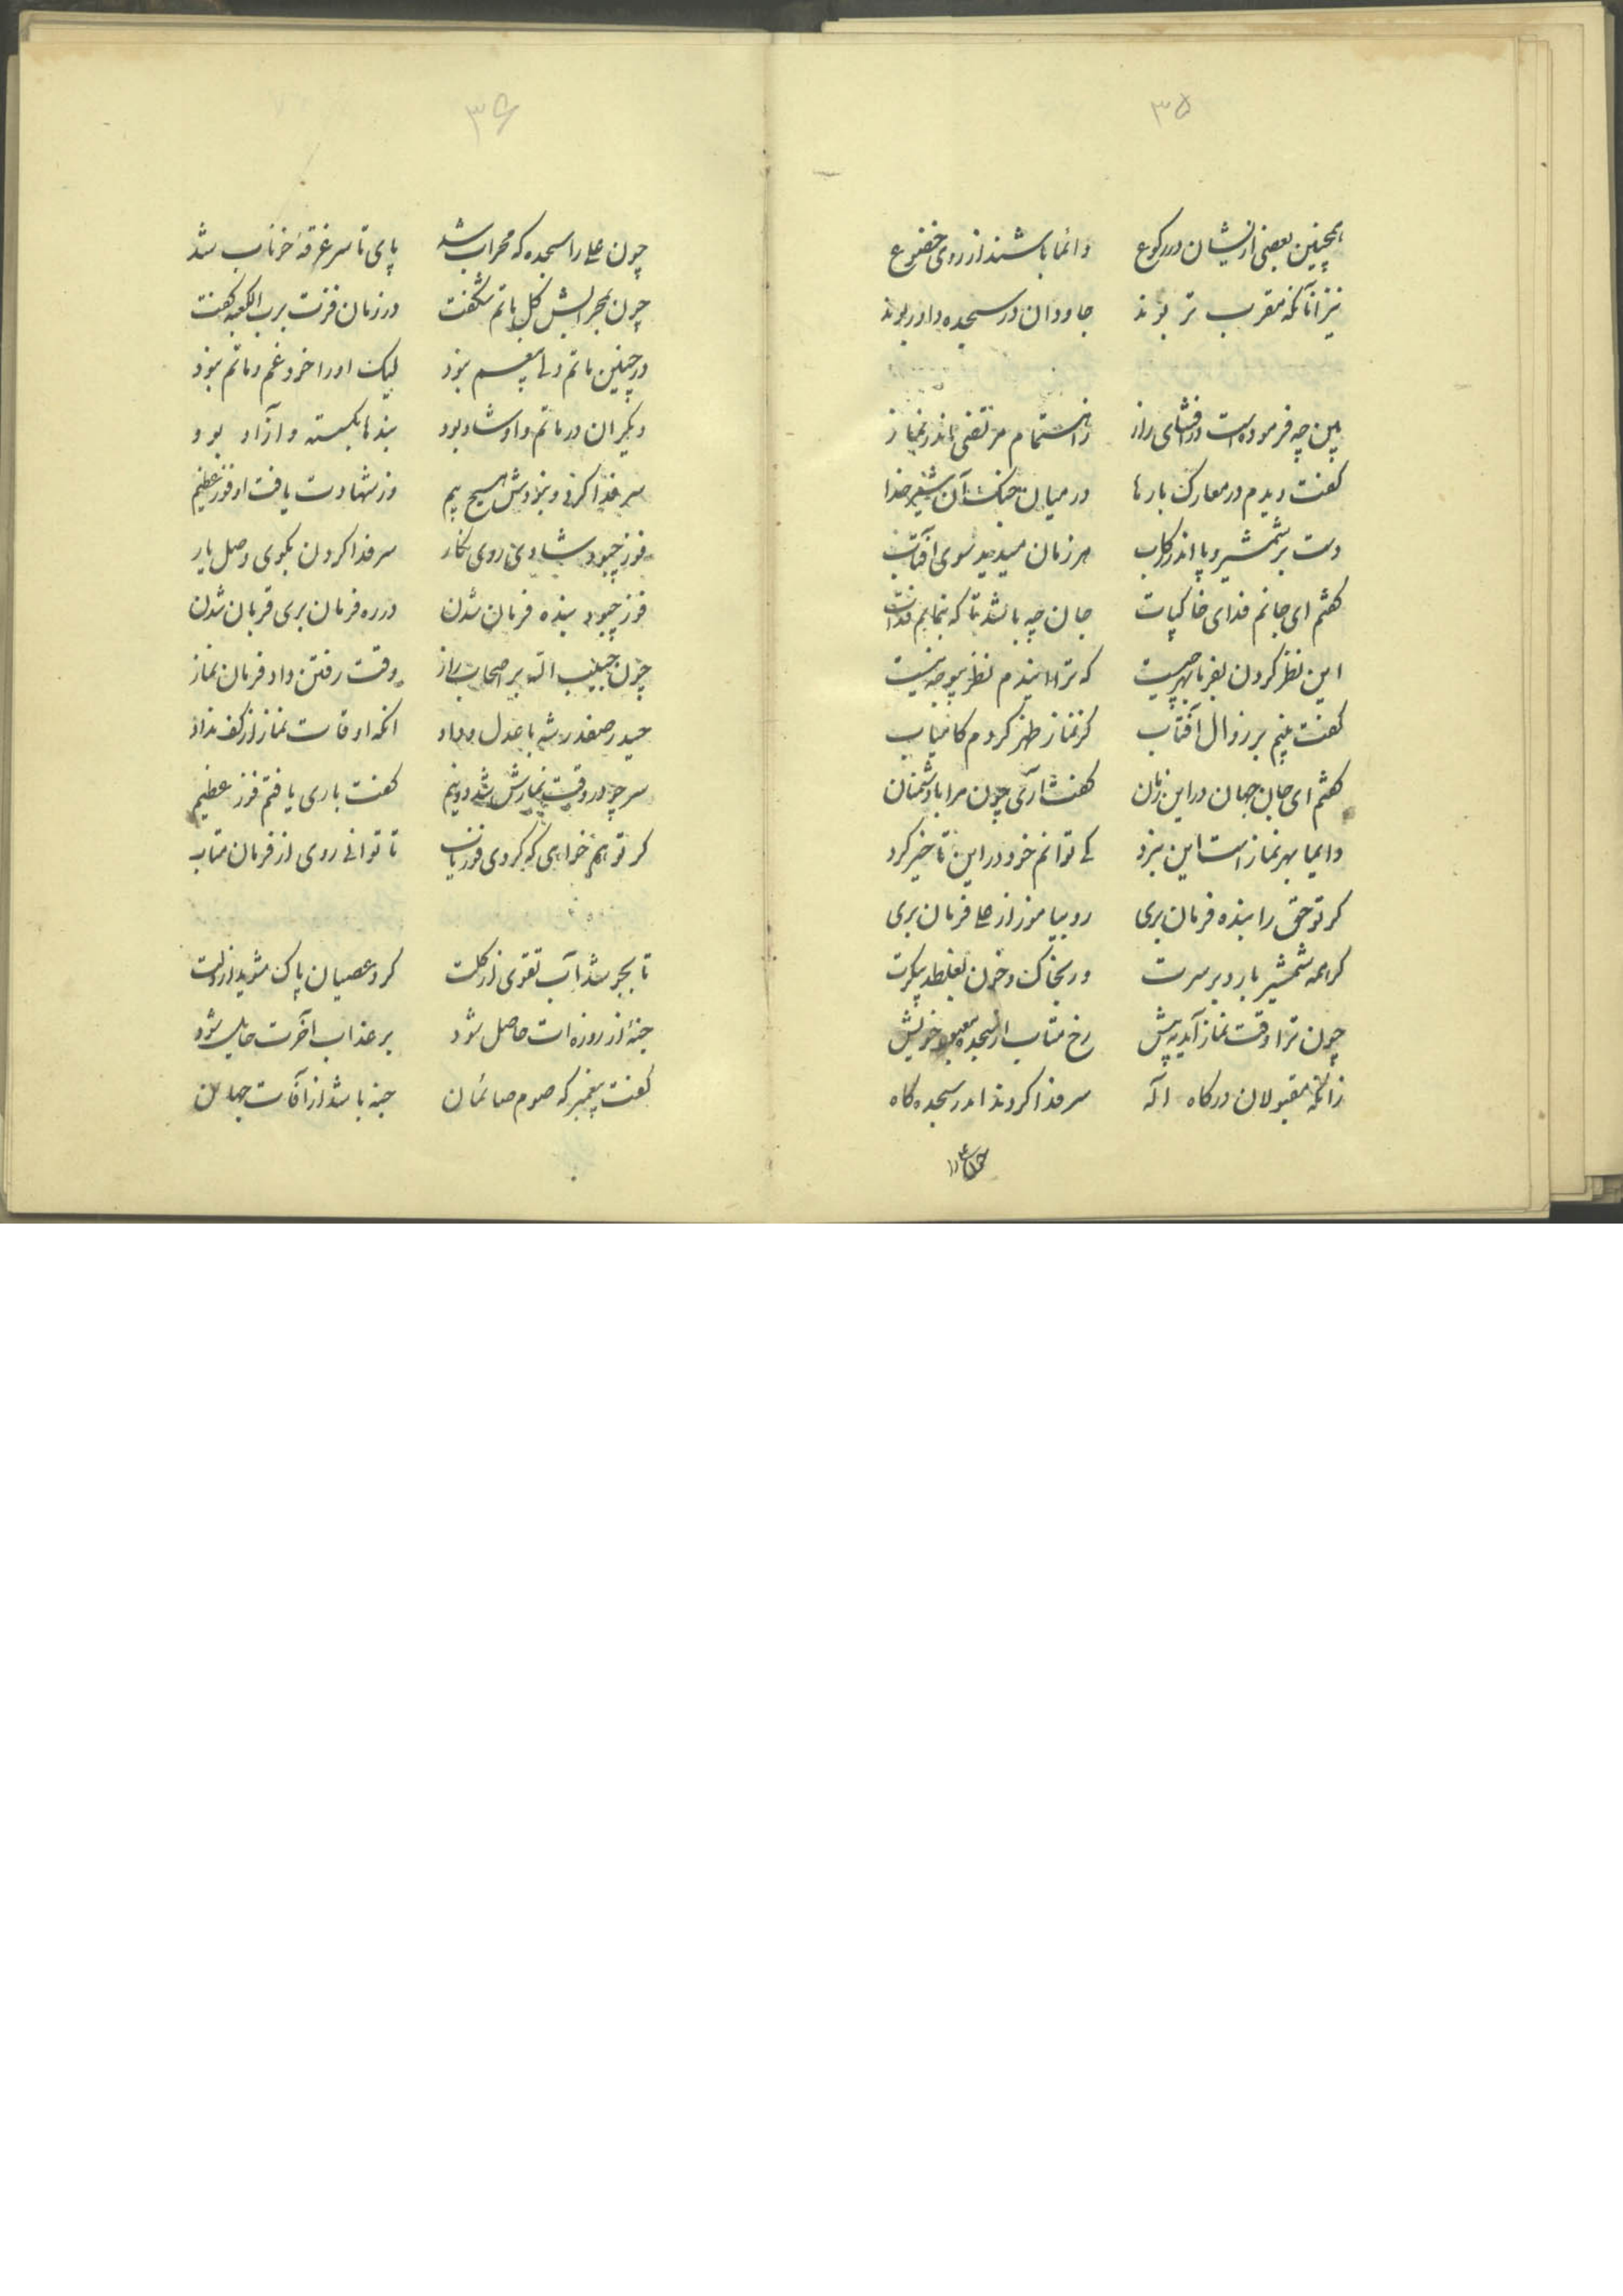 ۳۵
همچنین بعضی از ایشان در رکوع دائما باشند از روی خضوع
نیز آنانکه مقرب تر بوند جاودان در سجده داور بوند
بین چه فرموده است در افشای راز ز اهتمام مرتضی اندر نماز
گفت دیدم در معارک بارها در میان جنگ آن شیر خدا
دست بر شمشیر و پا اندر رکاب هر زمان میدید سوی آفتاب
گفتم ای جانم فدای خاکپات جان چه باشد تا که بنمایم فدات
این نظر کردن بفرما بهر چیست که ترا دانیم نظر بیوجه نیست
گفت بینم بر زوال آفتاب کز نماز ظهر گردم کامیاب
گفتم ای جان جهان در این زمان گفت آری چون مرا با دشمنان
دایما بهر نماز است این نبرد کی توانم خود در این تاخیر کرد
گر تو حق را بنده فرمان بری رو بیاموز از علی فرمان بری
گر همه شمشیر بارد بر سرت ور بخاک و خون بغلطد پیکرت
چون ترا وقت نماز آید به پیش رخ متاب از سجده معبود خویش
زانکه مقبولان درگاه اله سر فدا کردند اندر سجده گاه
۳۶
چون علی را سجده گه محراب شد پای تا سر غرقه خوناب شد
چون بمحرابش گل ماتم شگفت در زمان فزت برب الکعبه گفت
در چنین ماتم دلی بیغم نبود لیک او را خود غم و ماتم نبود
دیگران در ماتم و او شاد بود بندها بگسسته و آزاد بود
سر فدا کرد و نبودش هیچ بیم وز شهادت یافت او فوز عظیم
فوز چبود شادی روی نگار سر فدا کردن بکوی وصل یار
فوز چبود بنده فرمان شدن در ره فرمان بری قربان شدن
چون حبیب الله بر اصحاب راز وقت رفتن داد فرمان نماز
حیدر صفدر شه با عدل و داد آنکه اوقات نماز از کف نداد
سر چو در وقت نمازش شد دو نیم گفت باری یافتم فوز عظیم
گر تو هم خواهی که گردی فوزیاب تا توانی روی از فرمان متاب
تا بجو شد آب تقوی از گلت گرد عصیان پاک شوید از دلت
جنه از روزه ات حاصل شود بر عذاب آخرت حایل شود
گفت پیغمبر که صوم صائمان جنه باشد از آفات جهان